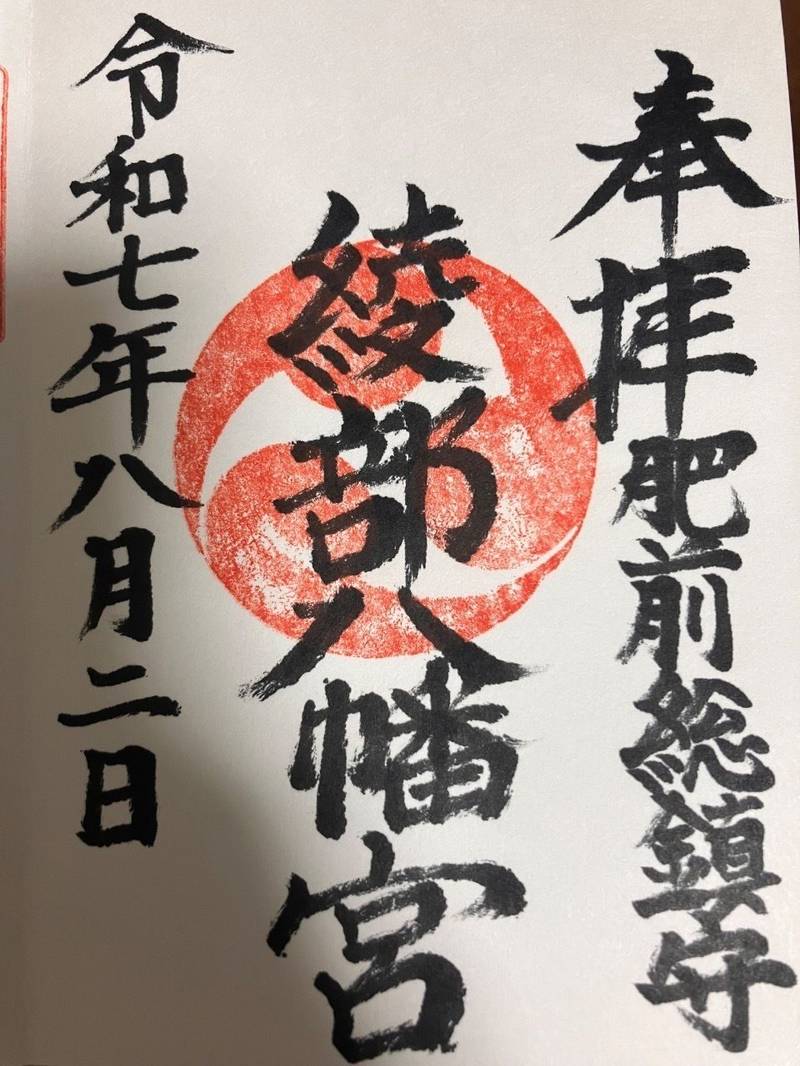 奉拝 肥前総鎮守
綾部八幡宮
令和七年八月二日